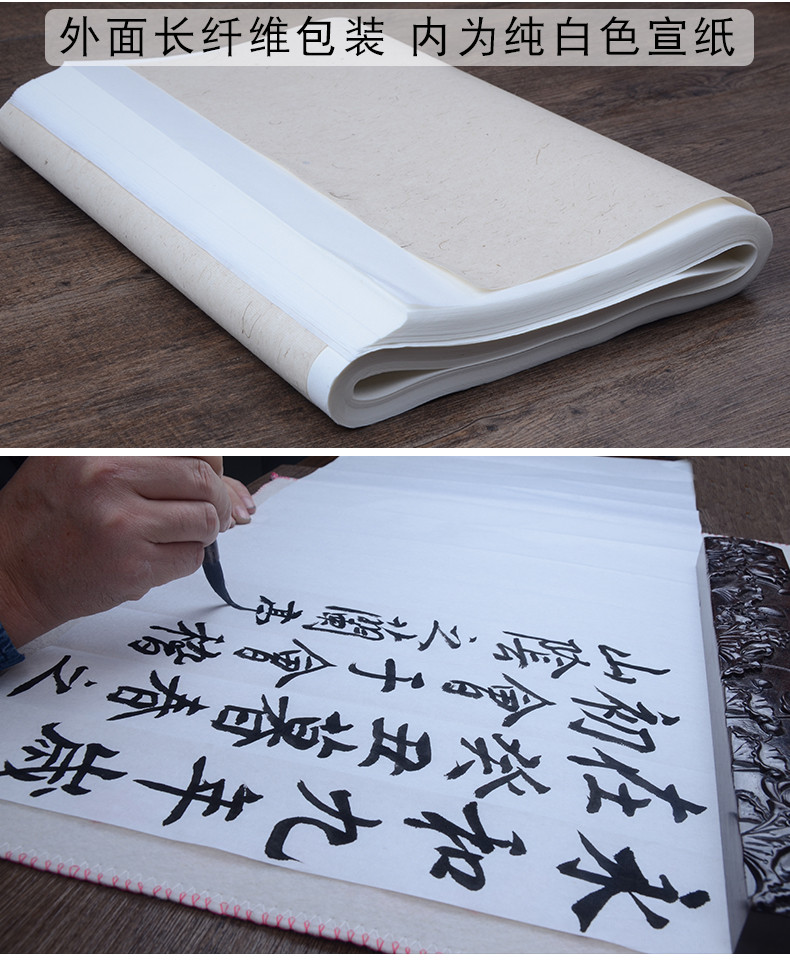 外面长纤维包装 内为纯白色宣纸
永和九年歲
在癸丑暮春之
初會于會稽
山陰之蘭亭